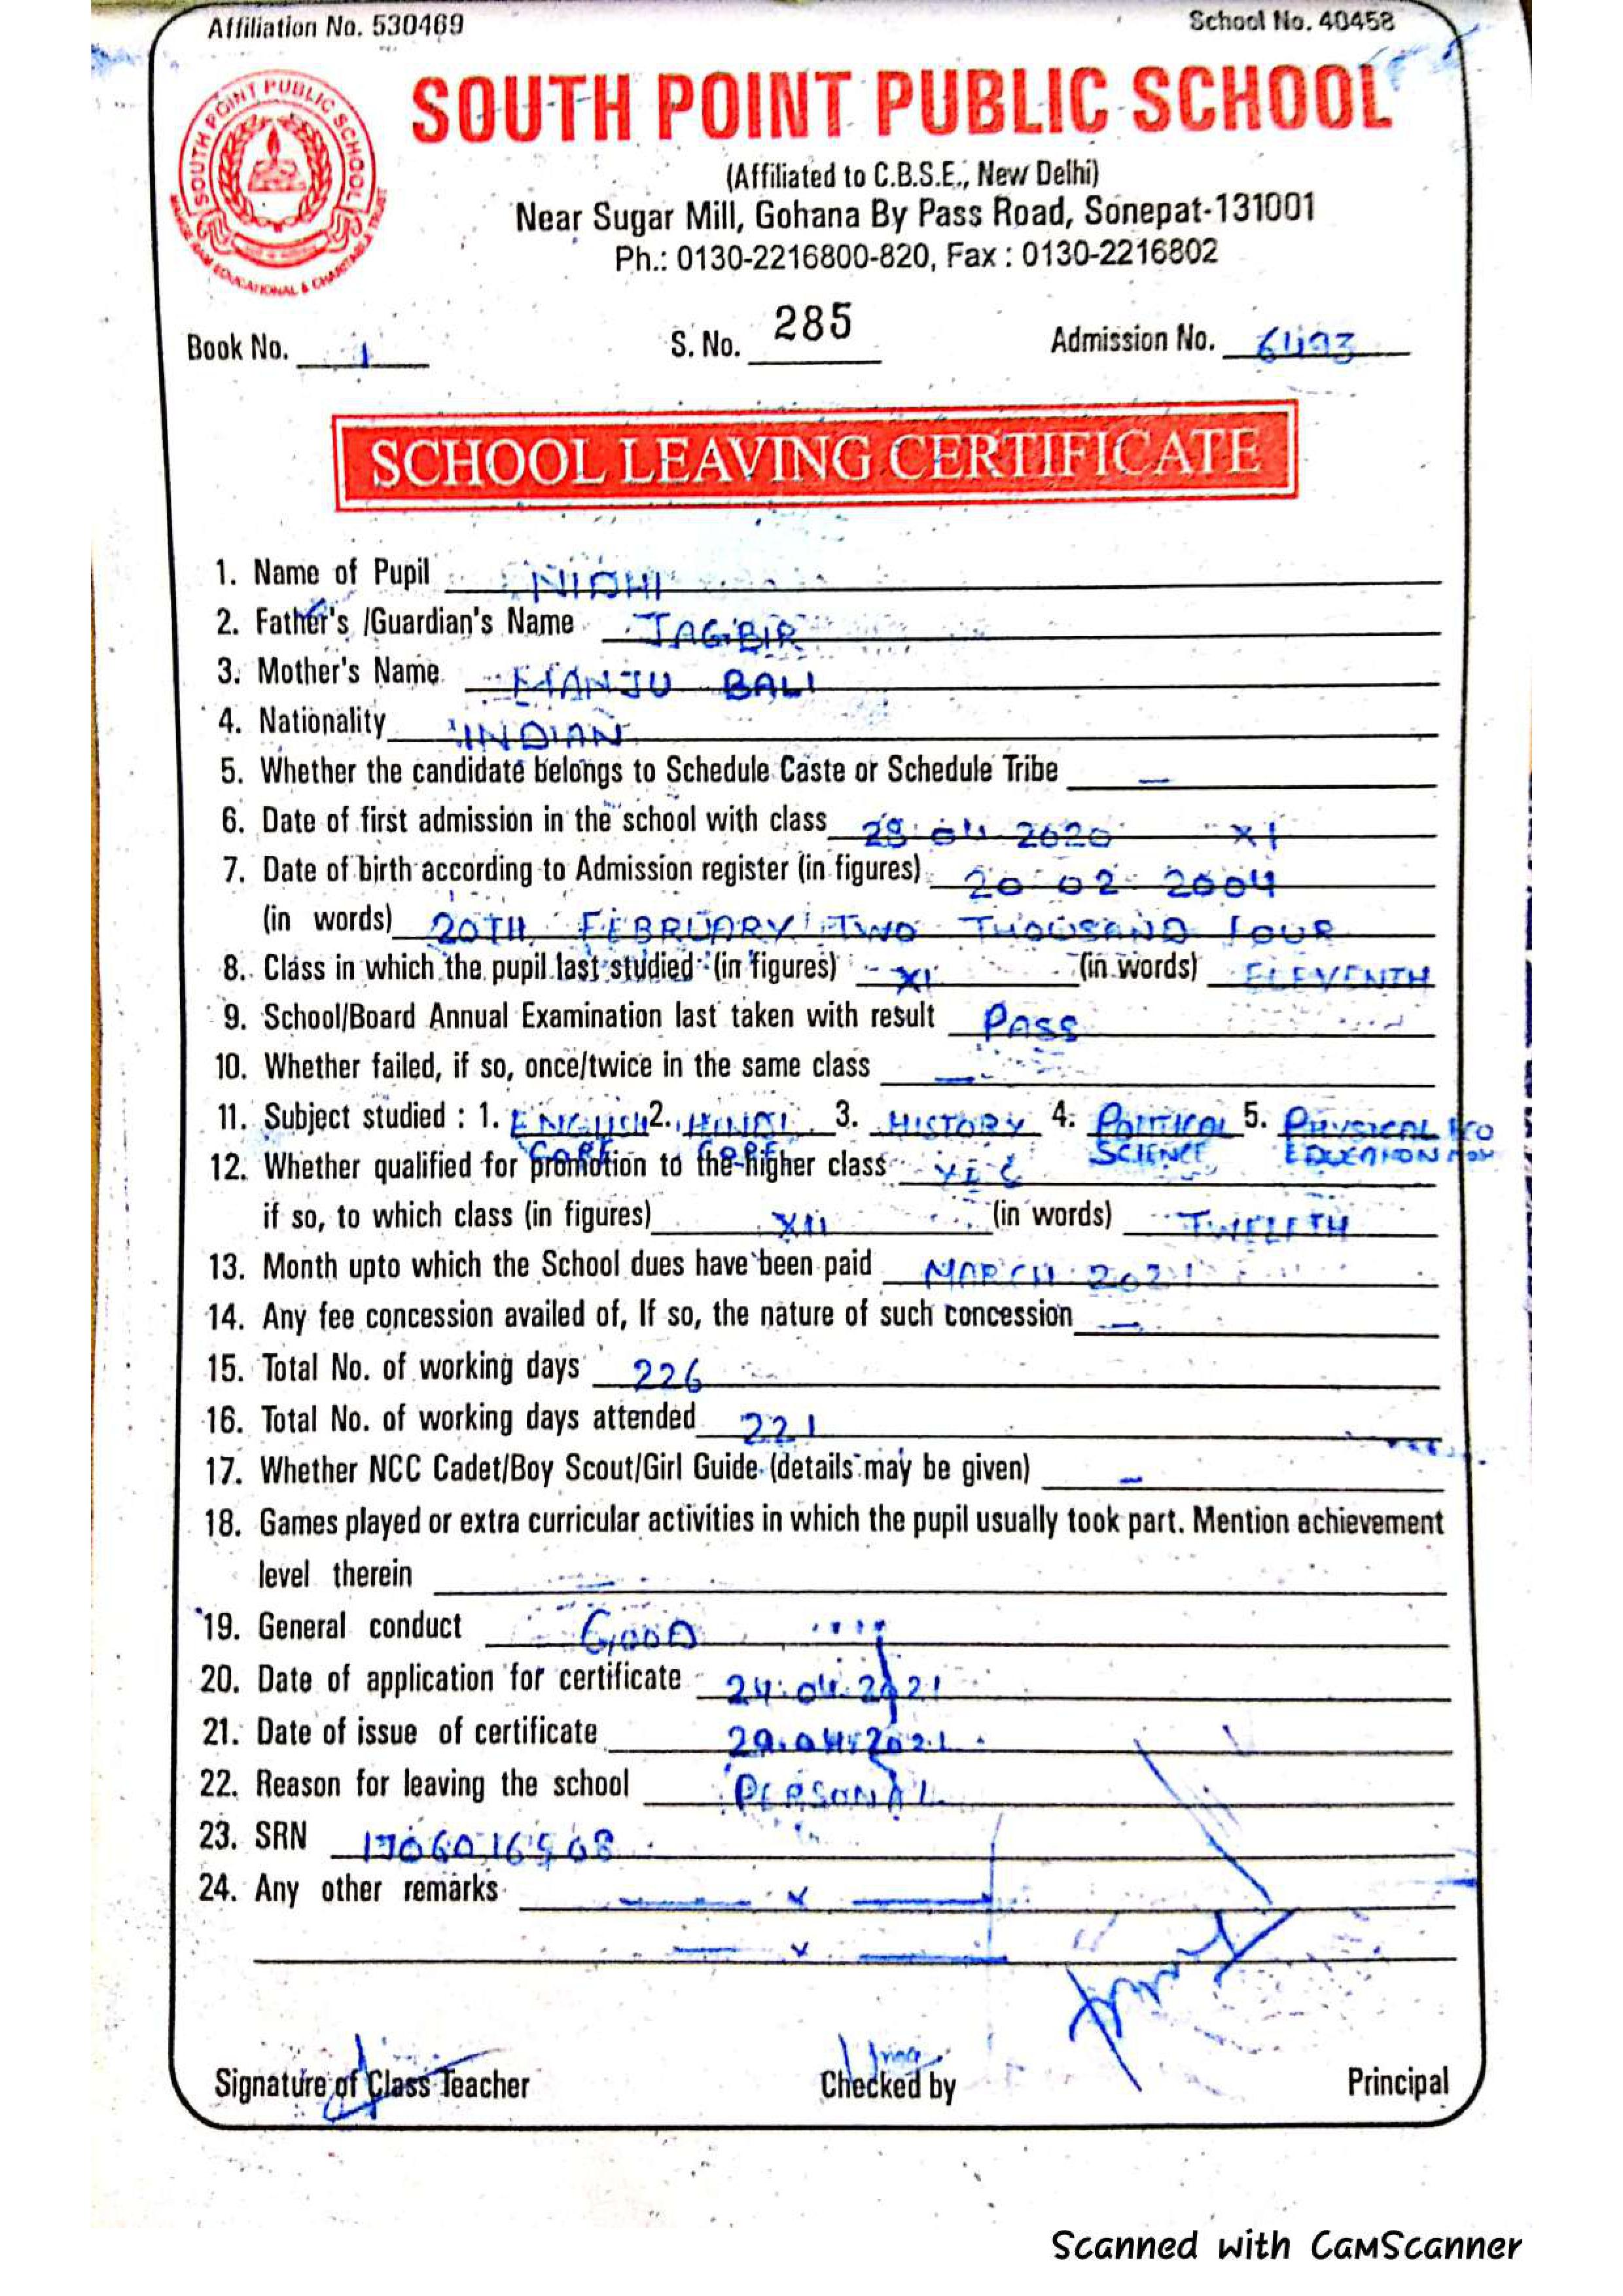 Affiliation No. 530469 School No. 40458
SOUTH POINT PUBLIC SCHOOL
(Affiliated to C.B.S.E., New Delhi)
Near Sugar Mill, Gohana By Pass Road, Sonepat-131001
Ph.: 0130-2216800-820, Fax : 0130-2216802
SOUTH POINT PUBLIC SCHOOL
EDUCATIONAL & CHARITABLE TRUST
Book No. 1 S. No. 285 Admission No. 6493
SCHOOL LEAVING CERTIFICATE
1. Name of Pupil NIDHI
2. Father's /Guardian's Name JAGBIR
3. Mother's Name MANJU BALI
4. Nationality INDIAN
5. Whether the candidate belongs to Schedule Caste or Schedule Tribe —
6. Date of first admission in the school with class 28.04.2020 XI
7. Date of birth according to Admission register (in figures) 20.02.2004
(in words) 20TH FEBRUARY TWO THOUSAND FOUR
8. Class in which the pupil last studied (in figures) XI (in words) ELEVENTH
9. School/Board Annual Examination last taken with result PASS
10. Whether failed, if so, once/twice in the same class —
11. Subject studied : 1. ENGLISH CORE 2. HINDI CORE 3. HISTORY 4. POLITICAL SCIENCE 5. PHYSICAL EDUCATION
12. Whether qualified for promotion to the higher class YES
if so, to which class (in figures) XII (in words) TWELFTH
13. Month upto which the School dues have been paid MARCH 2021
14. Any fee concession availed of, If so, the nature of such concession —
15. Total No. of working days 226
16. Total No. of working days attended 221
17. Whether NCC Cadet/Boy Scout/Girl Guide (details may be given) —
18. Games played or extra curricular activities in which the pupil usually took part. Mention achievement
level therein —
19. General conduct GOOD
20. Date of application for certificate 24.04.2021
21. Date of issue of certificate 29.04.2021
22. Reason for leaving the school PERSONAL
23. SRN
24. Any other remarks — x —
— x —
Signature of Class Teacher Checked by Principal
Scanned with CamScanner